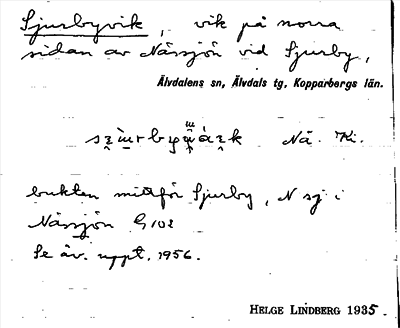 Sjurbyvik, vik på norra
sidan av Nässjön vid Sjurby,
Älvdalens sn, Älvdals tg, Kopparbergs län.
Nä. Ki.
bukten mittför Sjurby, N sj i
Nässjön G 102
Se äv. uppt. 1956.
HELGE LINDBERG 1935.